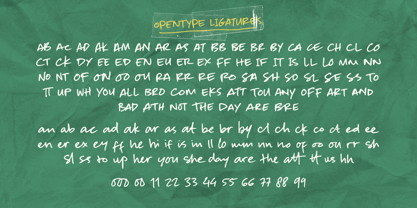 OPENTYPE LIGATURES
AB AC AD AK AM AN AR AS AT BB BE BR BY CA CE CH CL CO
CT CK DY EE ED EN EU ER EX FF HE IF IT IS LL LO MM NN
NO NT OF ON OO OU RA RR RE RO SA SH SO SL SE SS TO
TT UP WH YOU ALL BRO COM EKS ATT TOU ANY OFF ART AND
BAD ATH NOT THE DAY ARE BRE
an ab ac ad ak ar as at be br by cl ch ck co ct ed ee
en er ex ey ff he hi if is in ll lo mm nn no of oo ou rr sh
sl ss to up her you she day are the att tt us hh
000 00 11 22 33 44 55 66 77 88 99